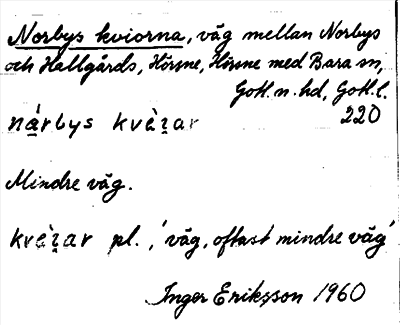 Norbys kviorna, väg mellan Norbys
och Hallgårds, Hörsne, Hörsne med Bara sn,
Gotl. n. hd, Gotl. l.
220
na̱rbys kvɛ̀ɪ̯ar
Mindre väg.
kvɛ̀ɪ̯ar pl., 'väg, oftast mindre väg'
Inger Eriksson 1960